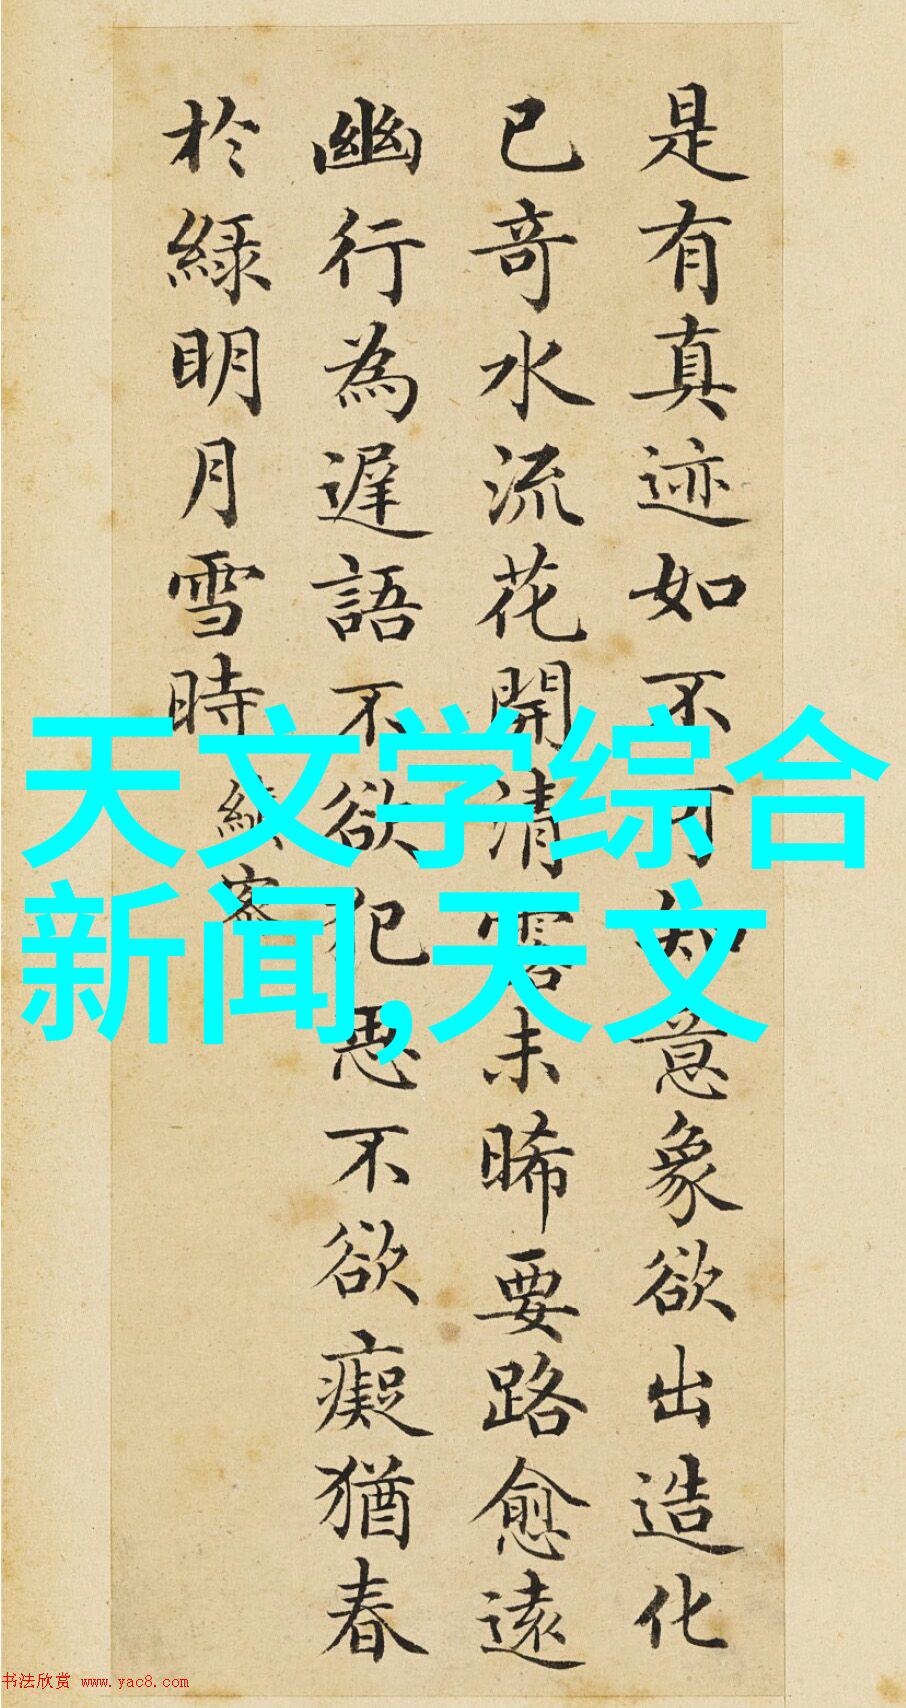 是有真迹如不可知意象欲出造化
已奇水流花開清露未晞要路愈遠
幽行為遲語不欲犯思不欲癡猶春
於綠明月雪時
縝密
天文学综合
新闻,天文
书法欣赏 www.yac8.com